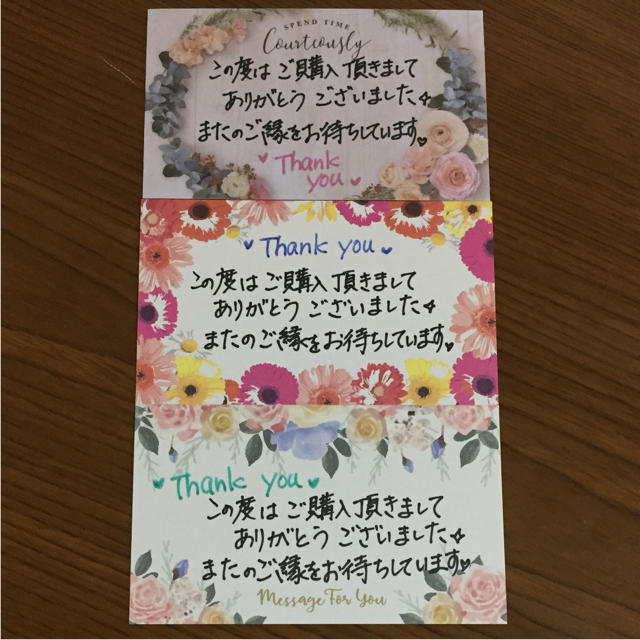 SPEND TIME
Courteously
この度は ご購入頂きまして
ありがとう ございました✧
またのご縁をお待ちしています♥
♥Thank
you♥
♥Thank you♥
この度は ご購入頂きまして
ありがとう ございました✧
またのご縁をお待ちしています♥
♥Thank you♥
この度は ご購入頂きまして
ありがとう ございました✧
またのご縁をお待ちしています♥
Message For You